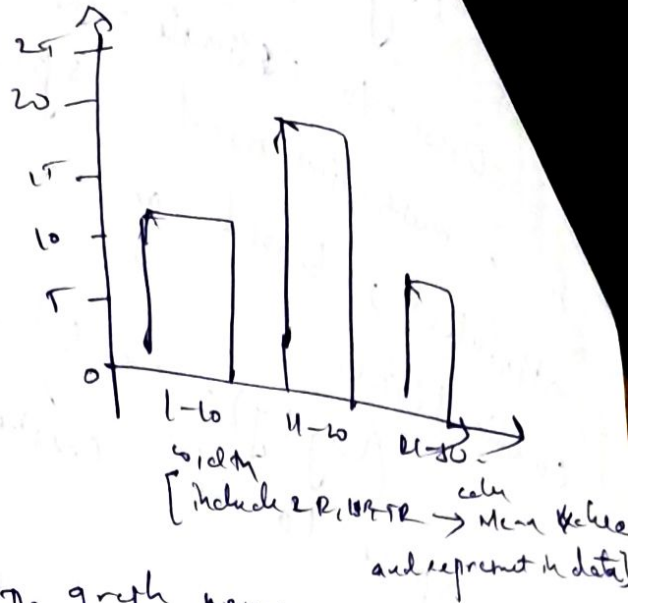 25
20
15
10
5
0
1-10
11-20
21-30
width
[include 2R, → Mean
and represent in data]
graph